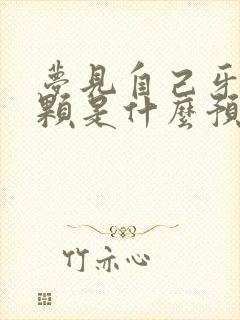 夢見自己牙
顆是什麼預
竹亦心